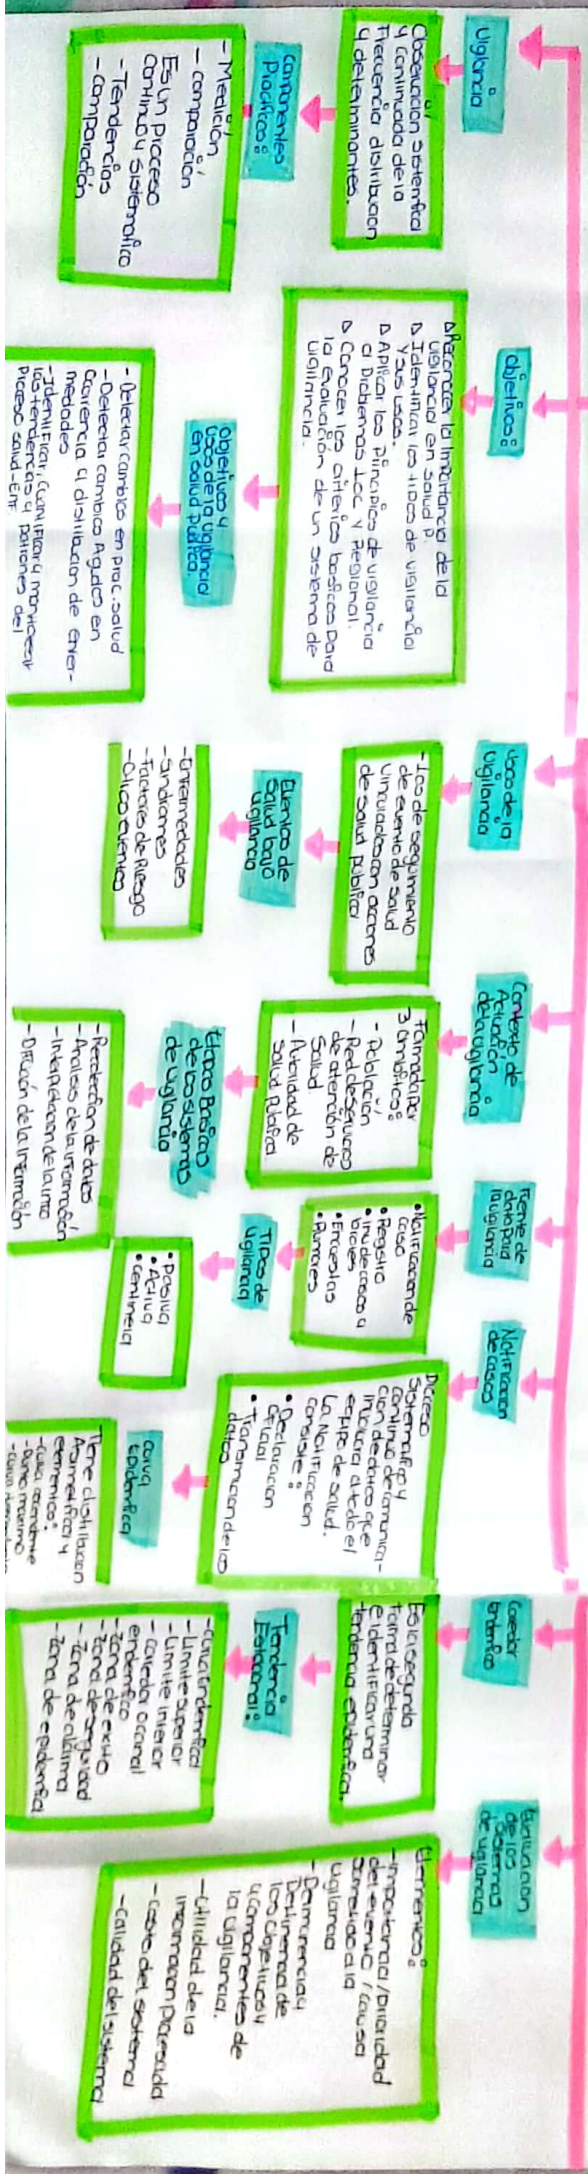 Vigilancia
Observación sistemática
y continuada de la
Frecuencia distribucion
y determinantes.
Componentes
Practicos:
- Medición
- comparación
Es un proceso
continuo y sistematico
- Tendencias
- comparación
Objetivos:
Reconocer la importancia de la
vigilancia en salud p.
Identificar los tipos de vigilancia
y sus usos.
Aplicar los principios de vigilancia
a problemas Loc y Regional.
Conocer los criterios basicos para
la evaluación de un sistema de
vigilancia.
Objetivos y
usos de la vigilancia
en salud publica.
- Detectar cambios en prac. salud
- Detectar cambios Agudos en
ocurrencia y distribucion de enfer-
medades
- Identificar, cuantificar y monitorear
las tendencias y patrones del
proceso salud-Enf.
Usos de la
vigilancia
- Los de seguimiento
de evento de salud
vinculados con acciones
de salud publica
Eventos de
Salud bajo
vigilancia
- Enfermedades
- Sindromes
- Factores de Riesgo
- Otros eventos
Contexto de
Actuación
de la vigilancia
Formada por
3 ambitos:
- Población
- Red de servicios
de atención de
Salud.
- Autoridad de
Salud publica.
Etapas Basicas
de los sistemas
de vigilancia
- Recolección de datos
- Analisis de la información
- Interpretacion de la info
- Difución de la información
Fuente de
dato para
la vigilancia
• Notificación de
caso
• Registro
• inv de casos y
brotes
• Encuestas
• Rumores
Tipos de
vigilancia
• Pasiva
• Activa
• Centinela
Notificación
de casos
Proceso
Sistematico y
continuo de comunica-
cion de datos que
involucra a todo el
equipo de salud.
La Notificacion
consiste:
• Declaracion
oficial
• Transmicion de los
datos
curva
Epidemica
Tiene distribucion
Asimetrica y
elementos:
- curva ascendente
- Punto maximo
- curva
Coredor
endemico
Es la segunda
forma de determinar
e identificar una
tendencia epidemica.
Tendencia
Estacional:
- curva Endemica
- Limite superior
- Limite inferior
- coredor o canal
endemico
- Zona de exito
- Zona de seguridad
- Zona de alarma
- Zona de epidemia
Evaluacion
de los
sistemas
de vigilancia
Elementos:
- Importancia / prioridad
del evento / causa
sometido a la
vigilancia
- Permanencia y
Pertinencia de
los objetivos y
componentes de
la vigilancia.
- Utilidad de la
informacion procesada
- Costo del sistema
- Calidad del sistema